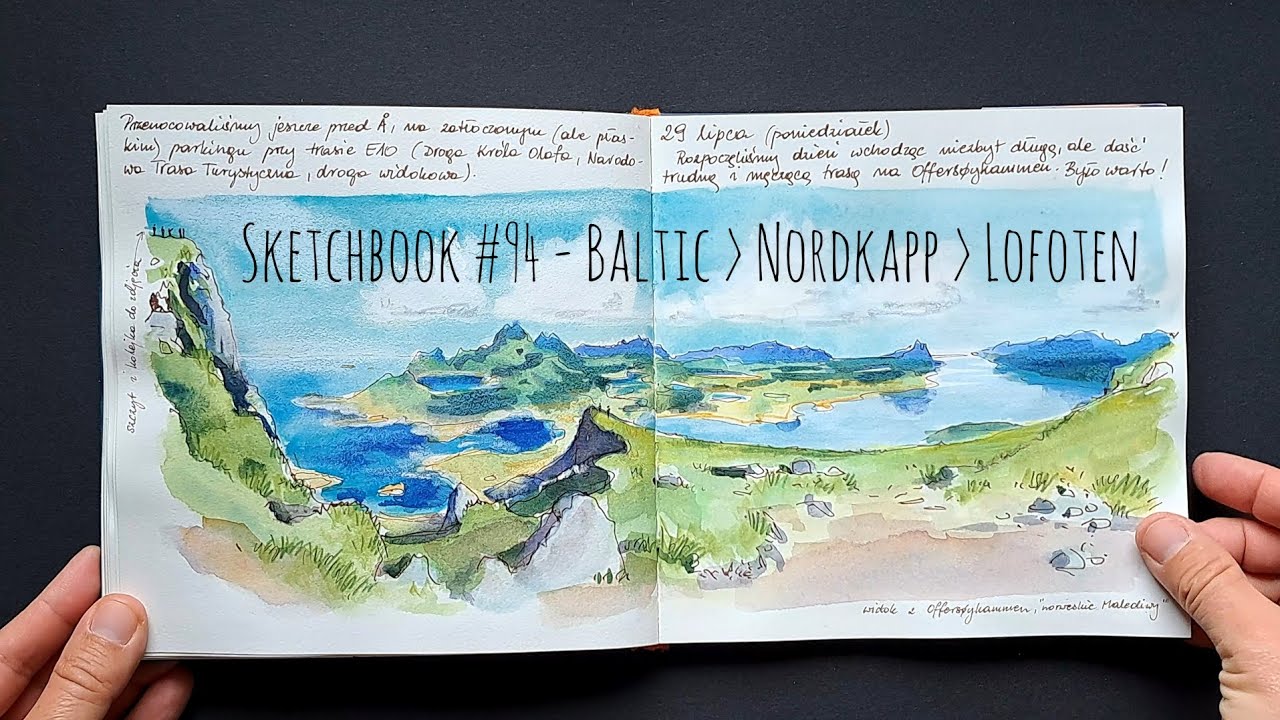 Przenocowaliśmy jeszcze przed Å, na zatłoczonym (ale płas-
kim) parkingu przy trasie E10 (Droga Króla Olafa, Narodo-
wa Trasa Turystyczna, droga widokowa).
29 lipca (poniedziałek)
Rozpoczęliśmy dzień wchodząc niezbyt długą, ale dość
trudną i męczącą trasą na Offersøykammen. Było warto!
SKETCHBOOK #94 - BALTIC > NORDKAPP > LOFOTEN
szczyt i kolejka do zdjęcia
widok z Offersøykammen, "norweskie Malediwy"